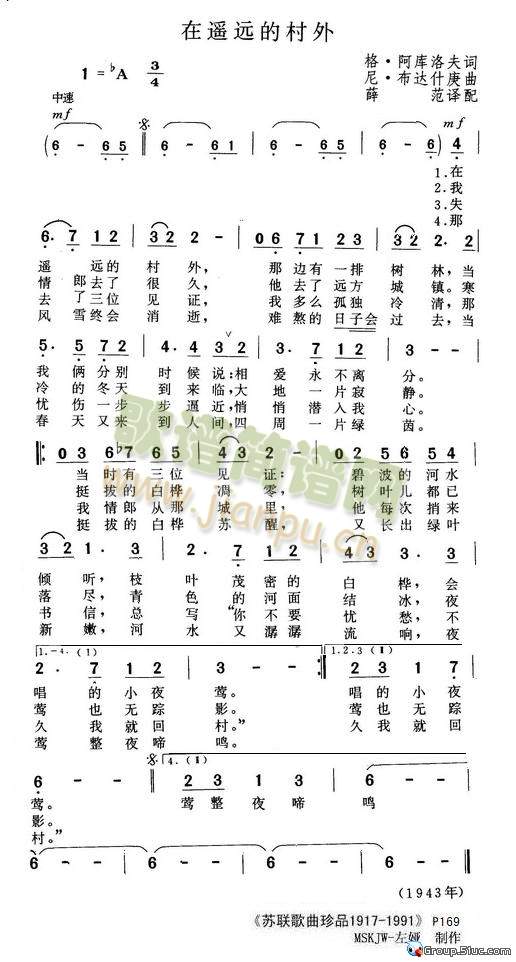 在遥远的村外
1=♭A 3/4
格·阿库洛夫词
尼·布达什庚曲
薛 范译配
中速
mf
6 - 65 6 - 65 6 - 6 - 6 - ) mf 4
1.在
2.我
3.失
4.那
6· 7 12 32 2 - 06 71 23 32 2· 2
遥 远的 村 外, 那边有一排 树 林,当
情 郎去了 很 久, 他去了远方 城 镇。寒
去 了三位 见 证, 我多么孤独 冷 清,那
风 雪终会 消 逝, 难熬的日子会 过 去,当
5· 57 62 4·4 32 2 3· 7 12 3 - -
我 俩分别 时候说:相 爱 永不离 分。
冷 的冬天 到来临,大 地 一片寂 静。
忧 伤一步步逼近,悄 悄 潜入我 心。
春 天又来 到人间,四 周 一片绿 茵。
03 6♭7 12 3 - 2 - 02 56 54
当时有三位 见 证: 碧波的河水
挺拔的白桦 凋 零, 树叶儿都已
我的郎从城 里, 他每次捎来
挺拔的白桦 苏 醒, 又长出绿叶
32 1· 3 2· 7 12 43 3· 3
倾听,枝 叶 茂密的 白 桦,会
落尽,青 色 的河面 结 冰,夜
书信,总 写“你不要 忧 愁,不
新嫩,河 水 又潺潺 流 响,夜
1.-4.(1) 1.2.3(1)
2· 7 12 3 - - 2 3 17
唱 的小夜 莺。
莺 也无踪 影。
久 我就回 村。”
莺 整夜啼 鸣。
4.(1)
6 - - 2 3 1 6 - - 6 - -
莺。 莺整夜啼 鸣
影。
村。”
6 - 6 - 6 - 6 - 6 -
(1943年)
《苏联歌曲珍品1917-1991》 P169
MSKJW-左娅 制作
歌谱简谱网
www.jianpu.cn
Group.51uc.com